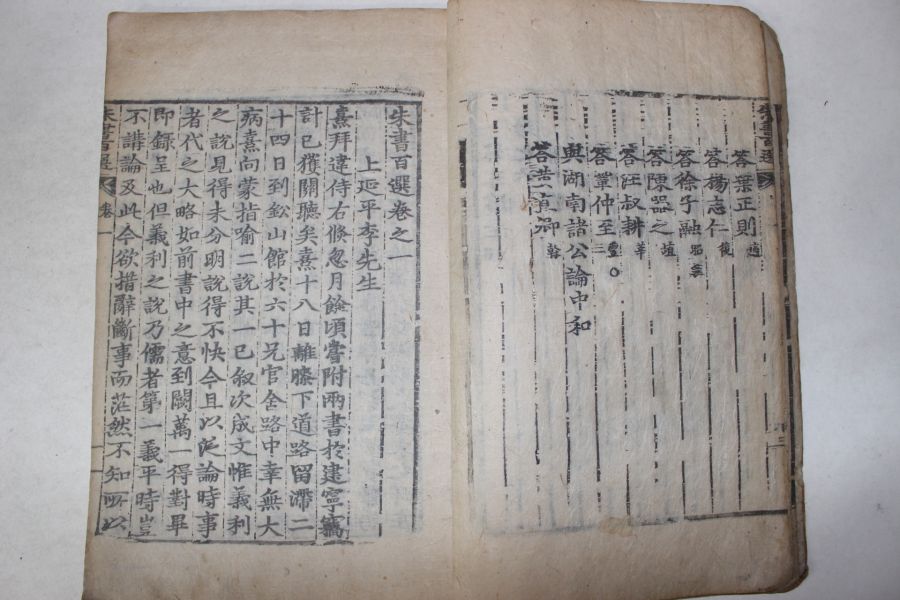 答葉正則 適
答楊志仁 復
答徐子融 昭然
答陳器之 埴
答汪叔耕 莘
答鞏仲至 豐 三
與湖南諸公論中和
答黃直卿 榦
朱書百選卷之一
上延平李先生
熹拜違侍右倏忽月餘頃嘗附兩書於建寧竊
計已獲關聽矣熹十八日離膝下道路留滯二
十四日到鈆山館於六十兄官舍路中幸無大
病熹向蒙指喻二說其一已敘次成文惟義利
之說見得未分明說得不快今且以泛論時事
者代之大略如前書中之意到闕萬一得對畢
即錄呈也但義利之說乃儒者第一義平時豈
不講論及此今欲措辭斷事而茫然不知所以
朱書百選 卷一